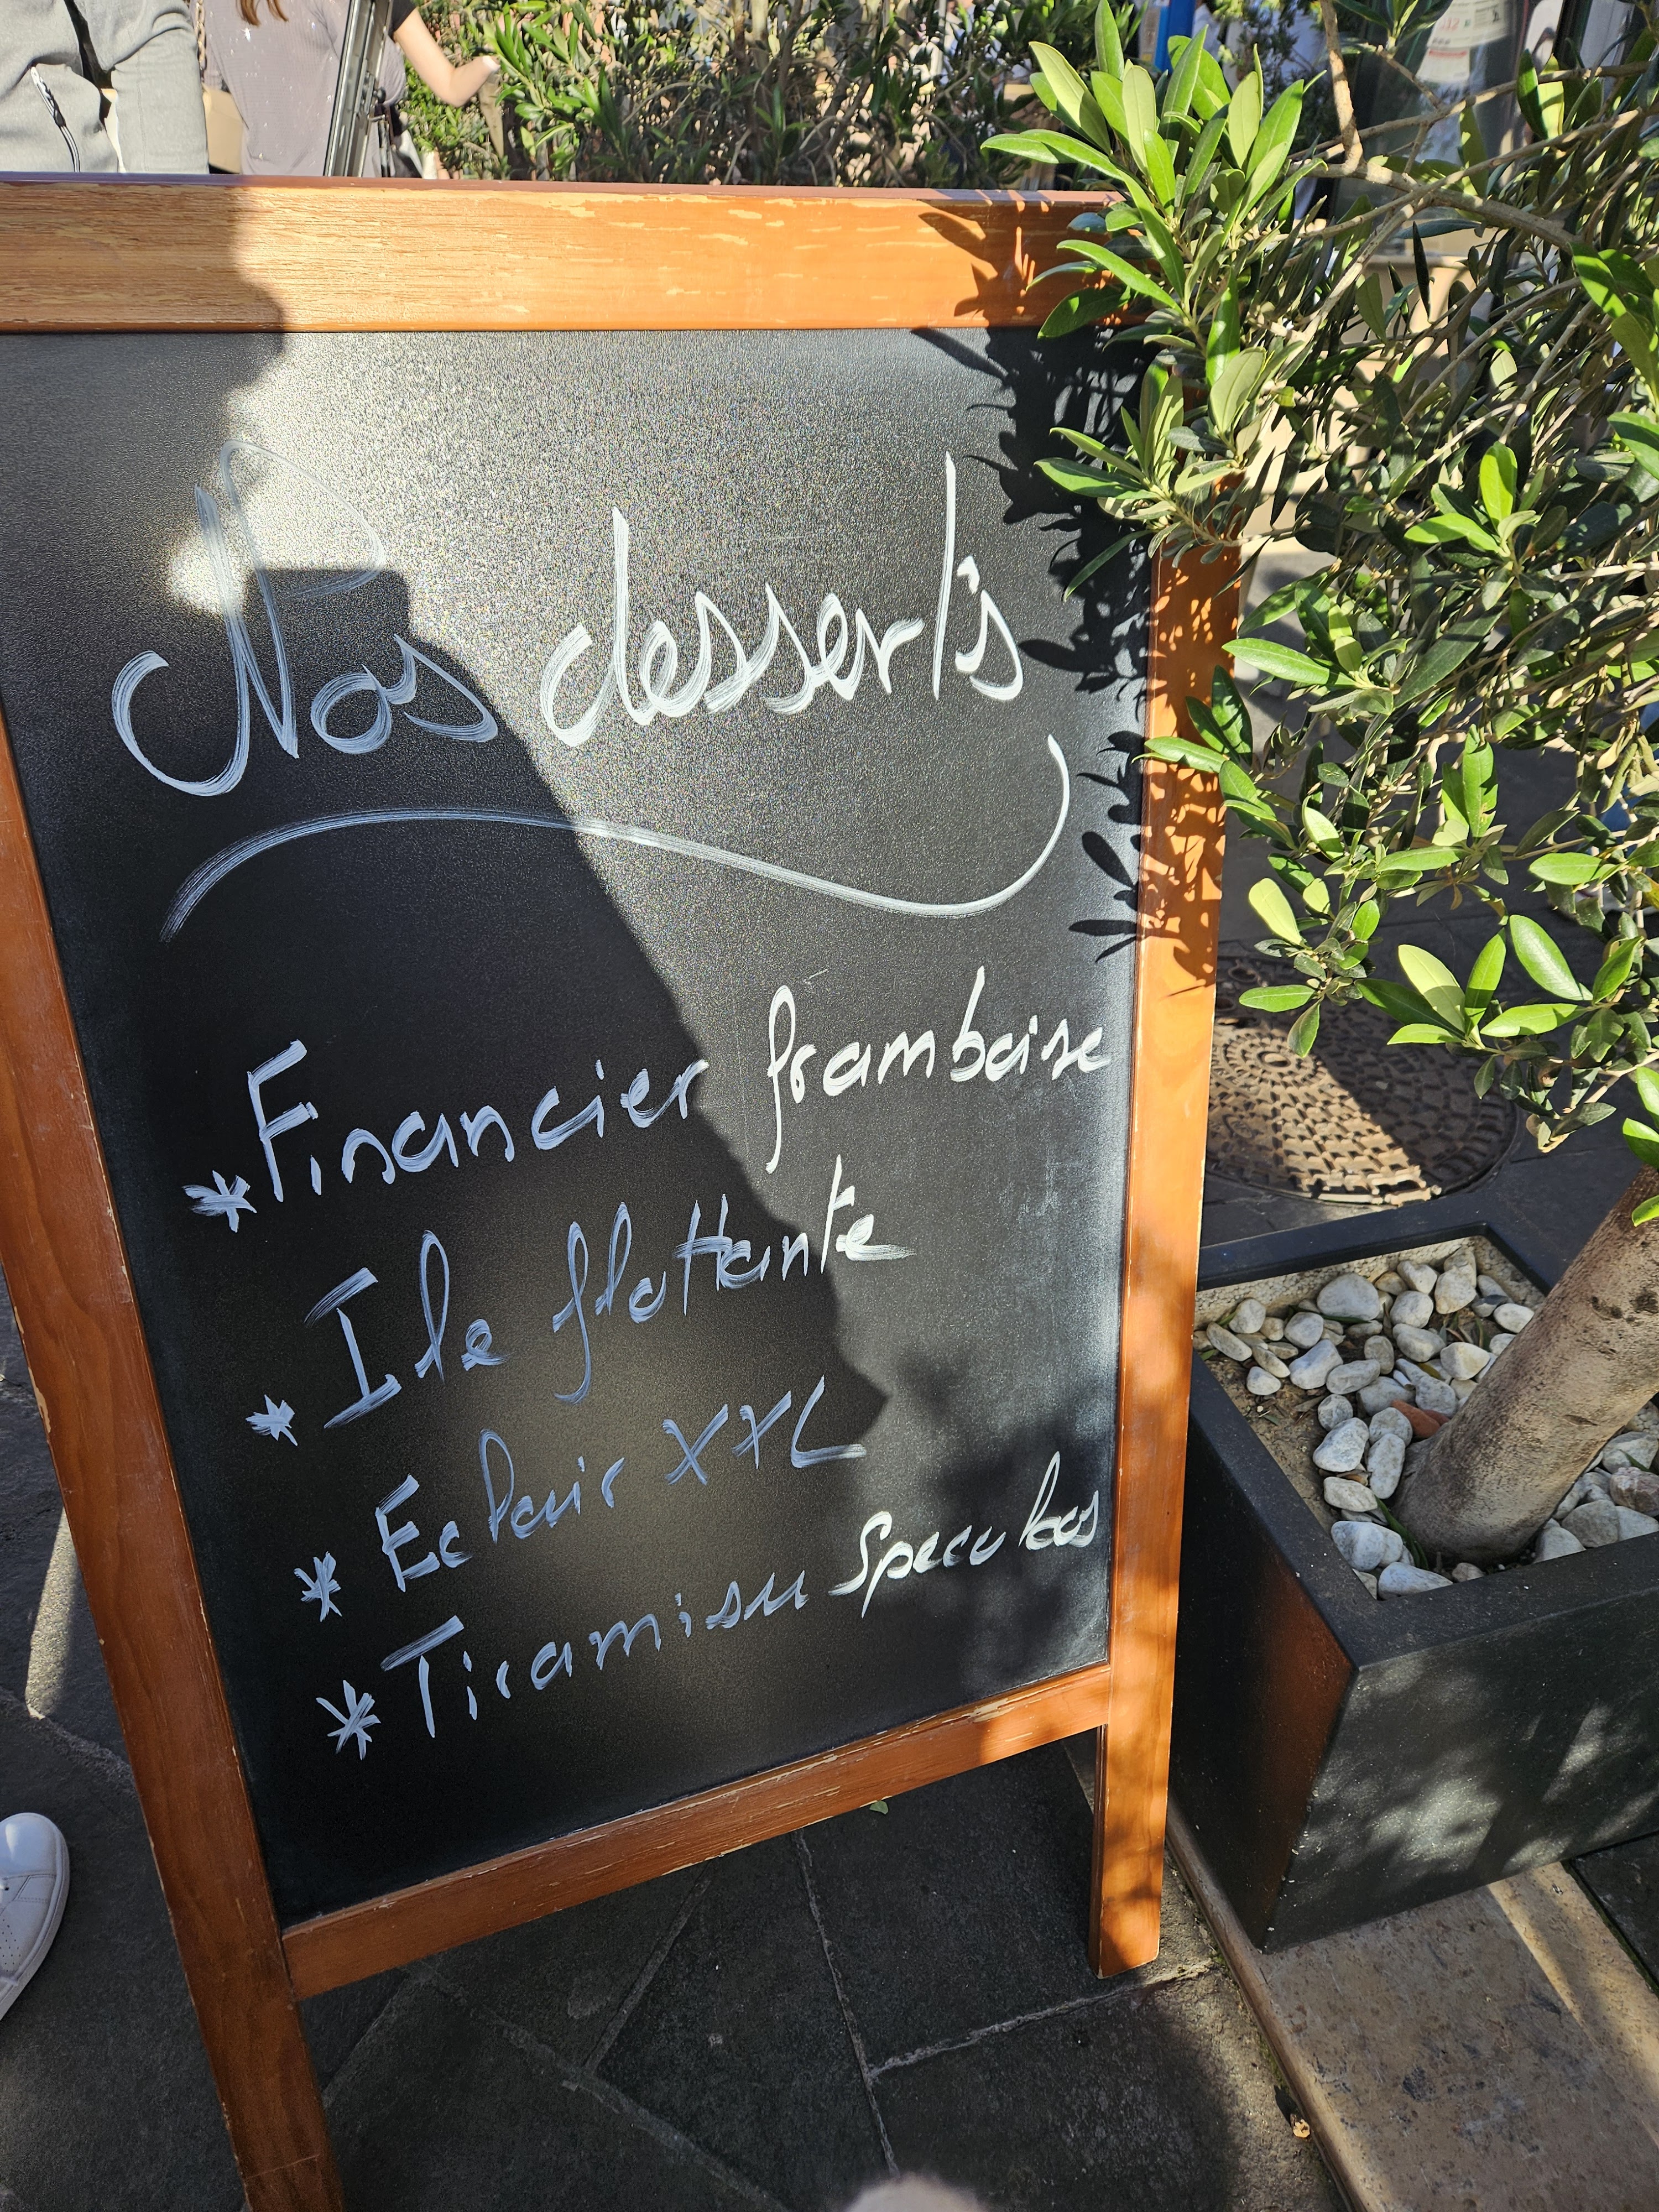 Nos desserts
*Financier framboise
* Ile flottante
* Eclair XXL
* Tiramisu Speculoos